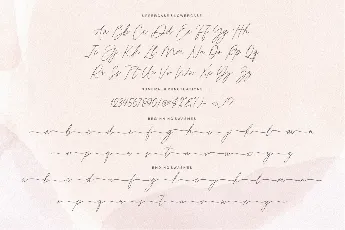 UPPERCASE & LOWERCASE
Aa Bb Cc Dd Ee Ff Gg Hh
Ii Jj Kk Ll Mm Nn Oo Pp Qq
Rr Ss Tt Uu Vv Ww Xx Yy Zz
1234567890!@#$
BEGINING SWASHES
a b c d e f g h i j k l m n
o p q r s t u v w x y z
ENDING SWASHES
a b c d e f g h i j k l m n
o p q r s t u v w x y z